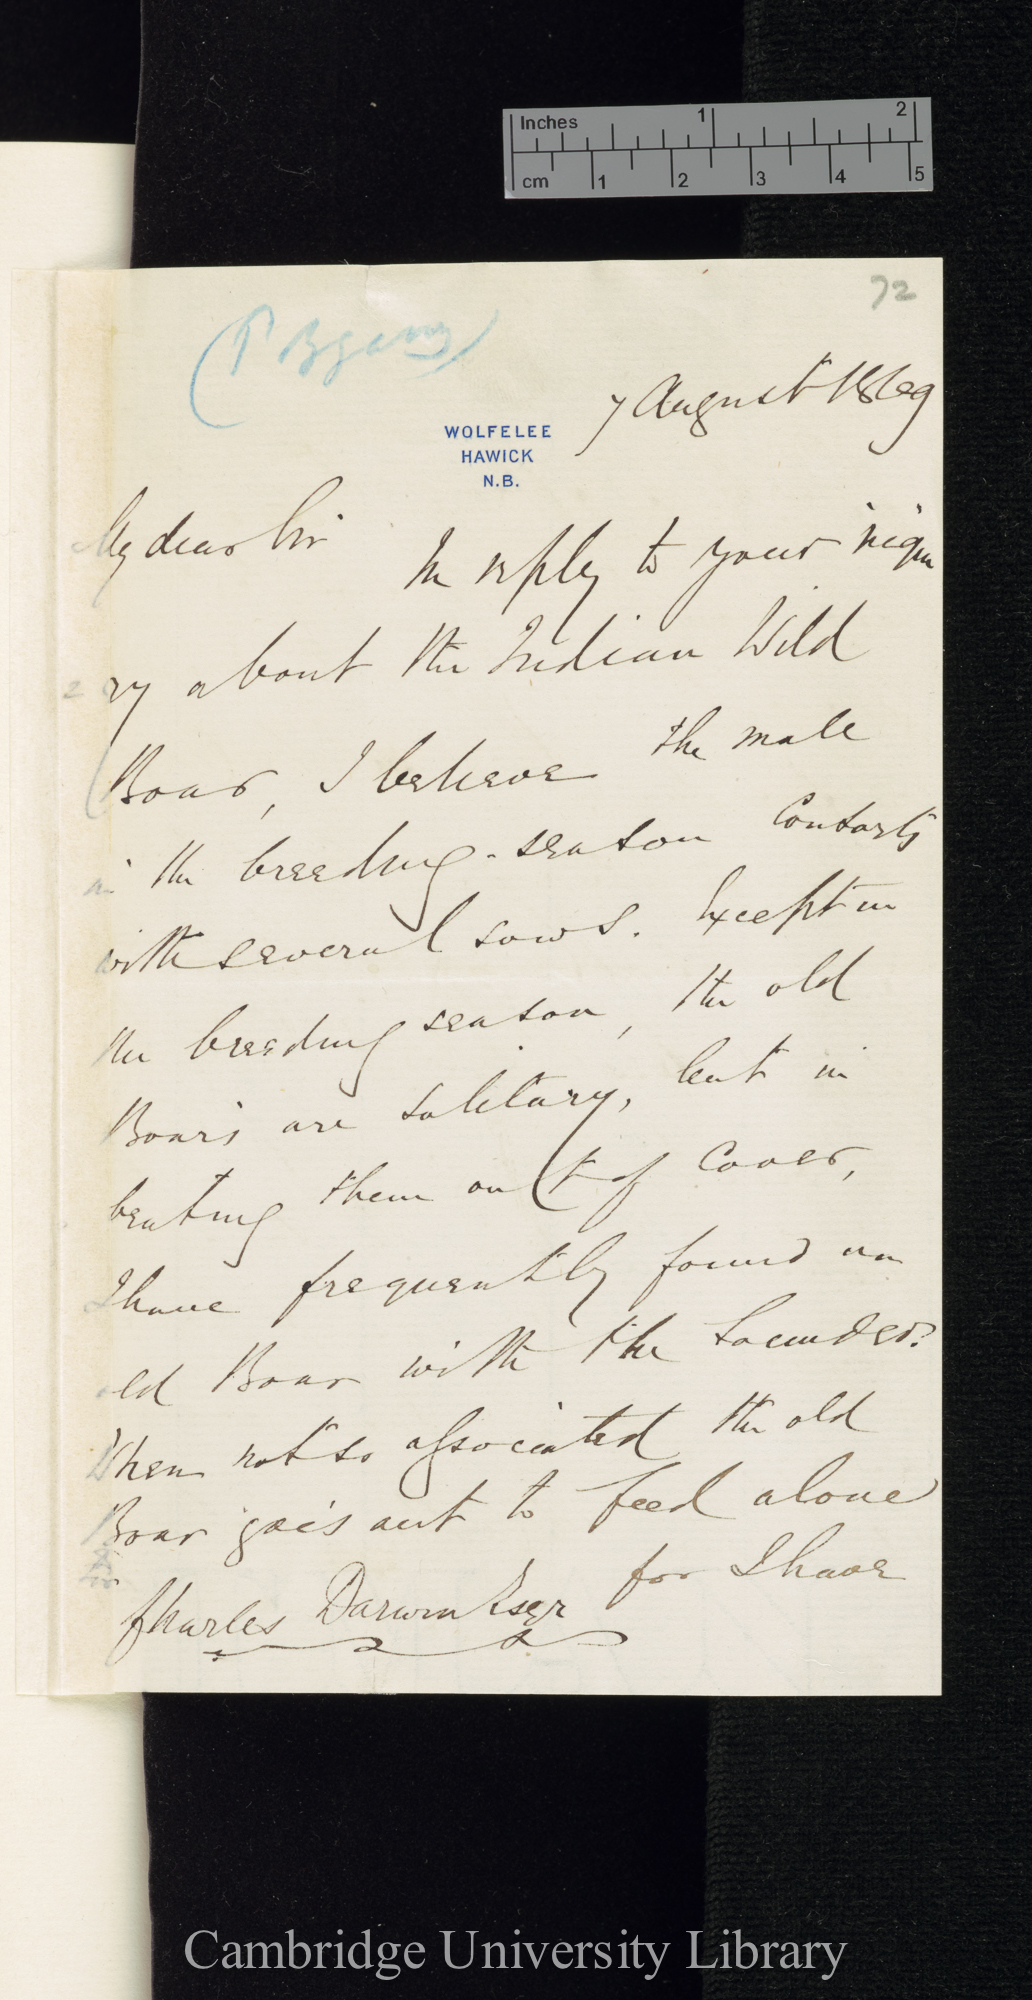 Inches 1 2
cm 1 2 3 4 5
72
(Polygamy)
7 August 1869
WOLFELEE
HAWICK
N.B.
My dear Sir
In reply to your inqui
ry about the Indian Wild
Boar, I believe the male
in the breeding-season consorts
with several sows. Except in
the breeding season, the old
Boars are solitary, but in
beating them out of cover,
I have frequently found an
old Boar with the Sounder.
When not so associated the old
Boar goes out to feed alone
for I have
Charles Darwin Esqr
Cambridge University Library